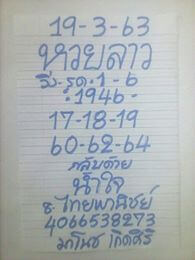 19-3-63
หวยลาว
วิ่ง-รูด-1-6
-1946-
17-18-19
60-62-64
กลับด้วย
น้ำใจ
ธ.ไทยพาณิชย์
4066538273
มาโนช เกิดศิริ